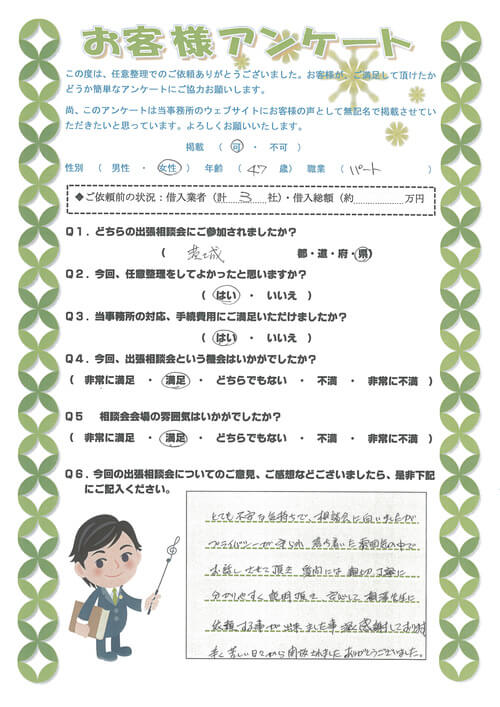 お客様アンケート
この度は、任意整理でのご依頼ありがとうございました。お客様が、ご満足して頂けたか
どうか簡単なアンケートにご協力お願いします。
尚、このアンケートは当事務所のウェブサイトにお客様の声として無記名で掲載させてい
ただきたいと思っています。よろしくお願いいたします。
掲載 （ 可 ・ 不可 ）
性別 （ 男性 ・ 女性 ） 年齢 （ 47 歳） 職業 （ パート ）
◆ご依頼前の状況：借入業者（計 3 社）・借入総額（約 万円
Q1．どちらの出張相談会にご参加されましたか？
（ 茨城 都・道・府・県）
Q2．今回、任意整理をしてよかったと思いますか？
（ はい ・ いいえ ）
Q3．当事務所の対応、手続費用にご満足いただけましたか？
（ はい ・ いいえ ）
Q4．今回、出張相談会という機会はいかがでしたか？
（ 非常に満足 ・ 満足 ・ どちらでもない ・ 不満 ・ 非常に不満 ）
Q5 相談会会場の雰囲気はいかがでしたか？
（ 非常に満足 ・ 満足 ・ どちらでもない ・ 不満 ・ 非常に不満 ）
Q6．今回の出張相談会についてのご意見、ご感想などございましたら、是非下記
にご記入ください。
とても不安な気持ちで、相談会に向いましたが
プライバシーが守られ 落ち着いた雰囲気の中で
お話しさせて頂き 質問には 親切丁寧に
分かりやすく説明頂き 安心して 相澤先生に
依頼する事が出来ました事 深く感謝しております
辛く苦しい日々から開放されました ありがとうございました。